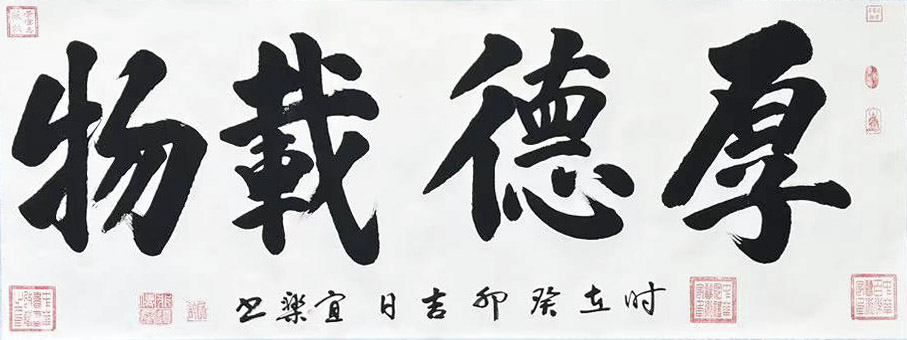 厚德載物
时在癸卯吉日宜樂书